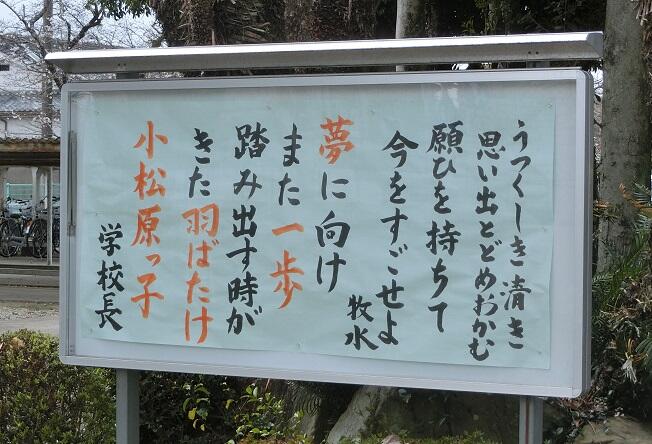 うつくしき清き
思い出とどめおかむ
願ひを持ちて
今をすごせよ
牧水
夢に向け
また一歩
踏み出す時が
きた羽ばたけ
小松原っ子
学校長